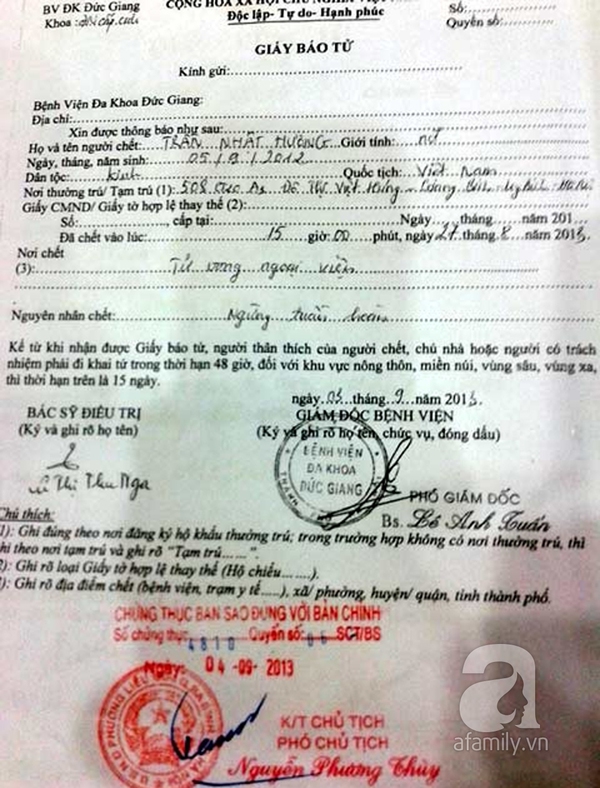 BV ĐK Đức Giang
Khoa:
CỘNG HÒA XÃ HỘI CHỦ NGHĨA VIỆT
Độc lập- Tự do- Hạnh phúc
Số:
Quyển số:
GIẤY BÁO TỬ
Kính gửi:
Bệnh Viện Đa Khoa Đức Giang:
Địa chỉ:
Xin được thông báo như sau:
Họ và tên người chết: TRẦN NHẬT HƯỜNG Giới tính: nữ
Ngày, tháng, năm sinh: 05/8/2012
Dân tộc: kinh Quốc tịch: Việt Nam
Nơi thường trú/ Tạm trú (1): 508 Việt Hưng
Giấy CMND/ Giấy tờ hợp lệ thay thế (2):
Số:, cấp tại: Ngày.....tháng......năm 201...
Đã chết vào lúc: 15 giờ: 00 phút, ngày 27 tháng 8 năm 2013
Nơi chết
(3): Tử vong ngoại viện
Nguyên nhân chết: Ngừng tuần hoàn
Kể từ khi nhận được Giấy báo tử, người thân thích của người chết, chủ nhà hoặc người có trách
nhiệm phải đi khai tử trong thời hạn 48 giờ, đối với khu vực nông thôn, miền núi, vùng sâu, vùng xa,
thì thời hạn trên là 15 ngày.
ngày 03 tháng 9 năm 2013
BÁC SỸ ĐIỀU TRỊ
(Ký và ghi rõ họ tên)
GIÁM ĐỐC BỆNH VIỆN
(Ký và ghi rõ họ tên, chức vụ, đóng dấu)
BỆNH VIỆN
ĐA KHOA
ĐỨC GIANG
Thị Thu Nga
PHÓ GIÁM ĐỐC
Bs. Lê Anh Tuấn
Chú thích:
1): Ghi đúng theo nơi đăng ký hộ khẩu thường trú; trong trường hợp không có nơi thường trú, thì
hi theo nơi tạm trú và ghi rõ "Tạm trú...... ".
2): Ghi rõ loại Giấy tờ hợp lệ thay thế (Hộ chiếu........).
): Ghi rõ địa điểm chết (bệnh viện, trạm y tế .....), xã/ phường, huyện/ quận, tỉnh thành phố.
CHỨNG THỰC BẢN SAO ĐÚNG VỚI BẢN CHÍNH
Số chứng thực 4810 Quyển số: 05 SCT/BS
Ngày: 04-09-2013
K/T CHỦ TỊCH
PHÓ CHỦ TỊCH
Nguyễn Phương Thùy
a
afamily.vn